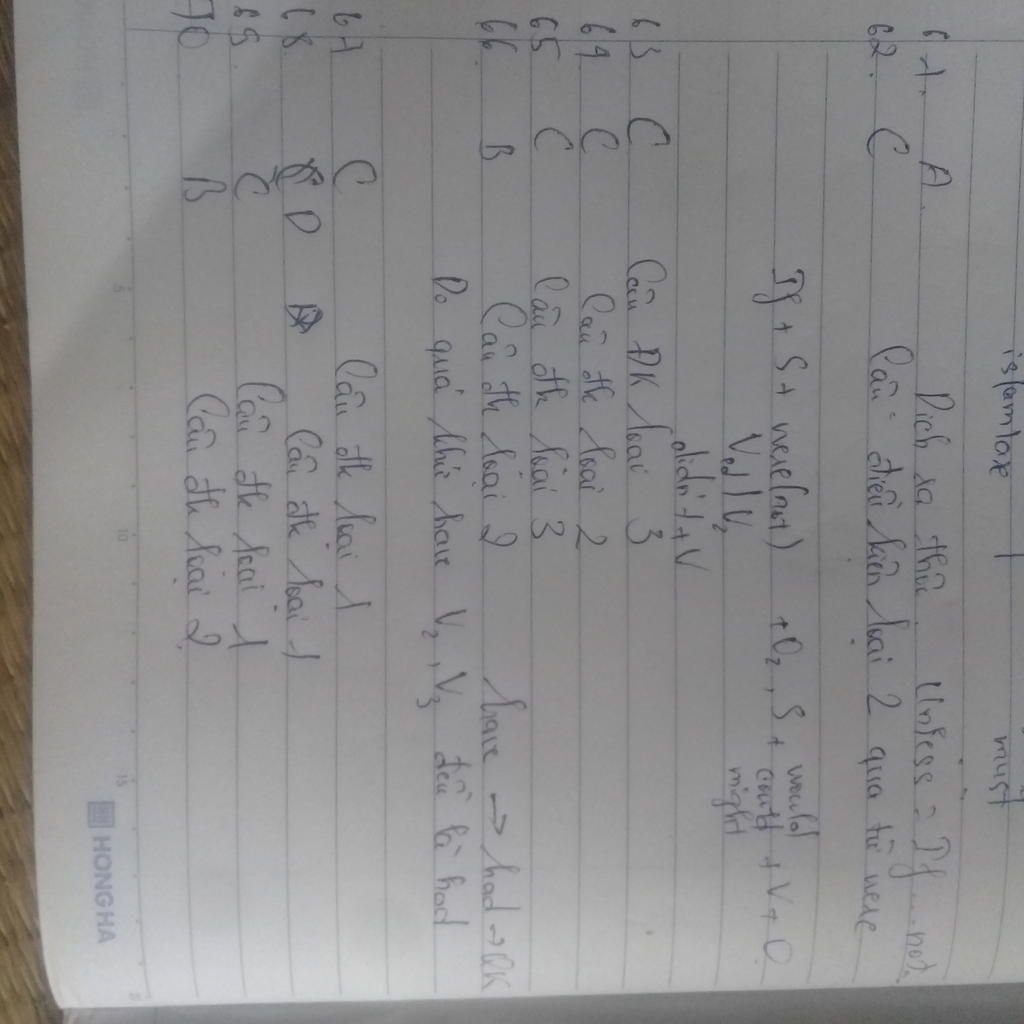 is/am/are
must
61. A. Dịch ra thôi. Unless = If....not.
62. C Câu điều kiện loại 2 qua từ were
If + S + were(not) + O2, S + would + V + O
Ved / V2 could
didn't + V might
63 C Câu ĐK loại 3
64 C Câu đk loại 2
65 C Câu đk loại 3
66. B Câu đk loại 2 have → had → QK
Do quá khứ have V2, V3 đều là had
67 C Câu đk loại 1
68. D Câu đk loại 1
69. C Câu đk loại 1
70 B Câu đk loại 2
HONG HA
5
10
15